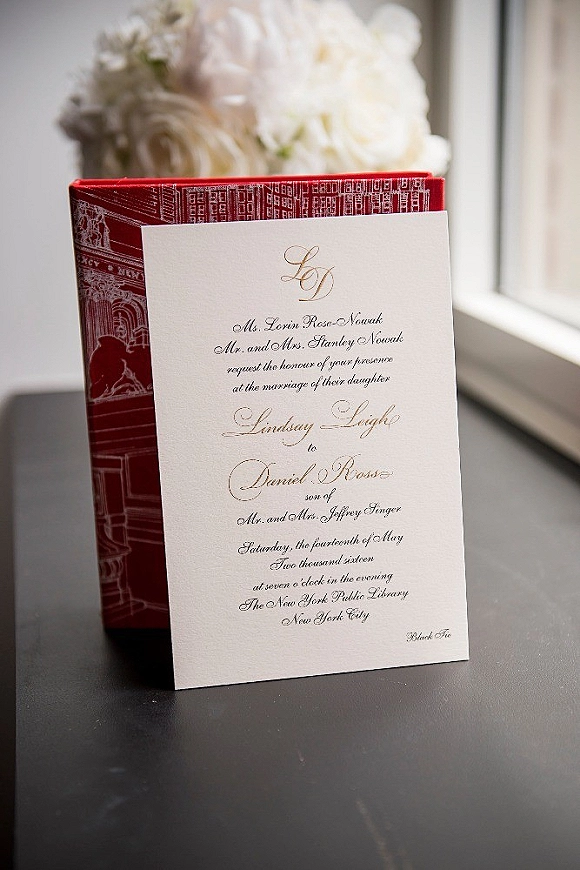 LD
Ms. Lorin Rose-Nowak
Mr. and Mrs. Stanley Nowak
request the honour of your presence
at the marriage of their daughter
Lindsay Leigh
to
Daniel Ross
son of
Mr. and Mrs. Jeffrey Singer
Saturday, the fourteenth of May
Two thousand sixteen
at seven o'clock in the evening
The New York Public Library
New York City
Black Tie